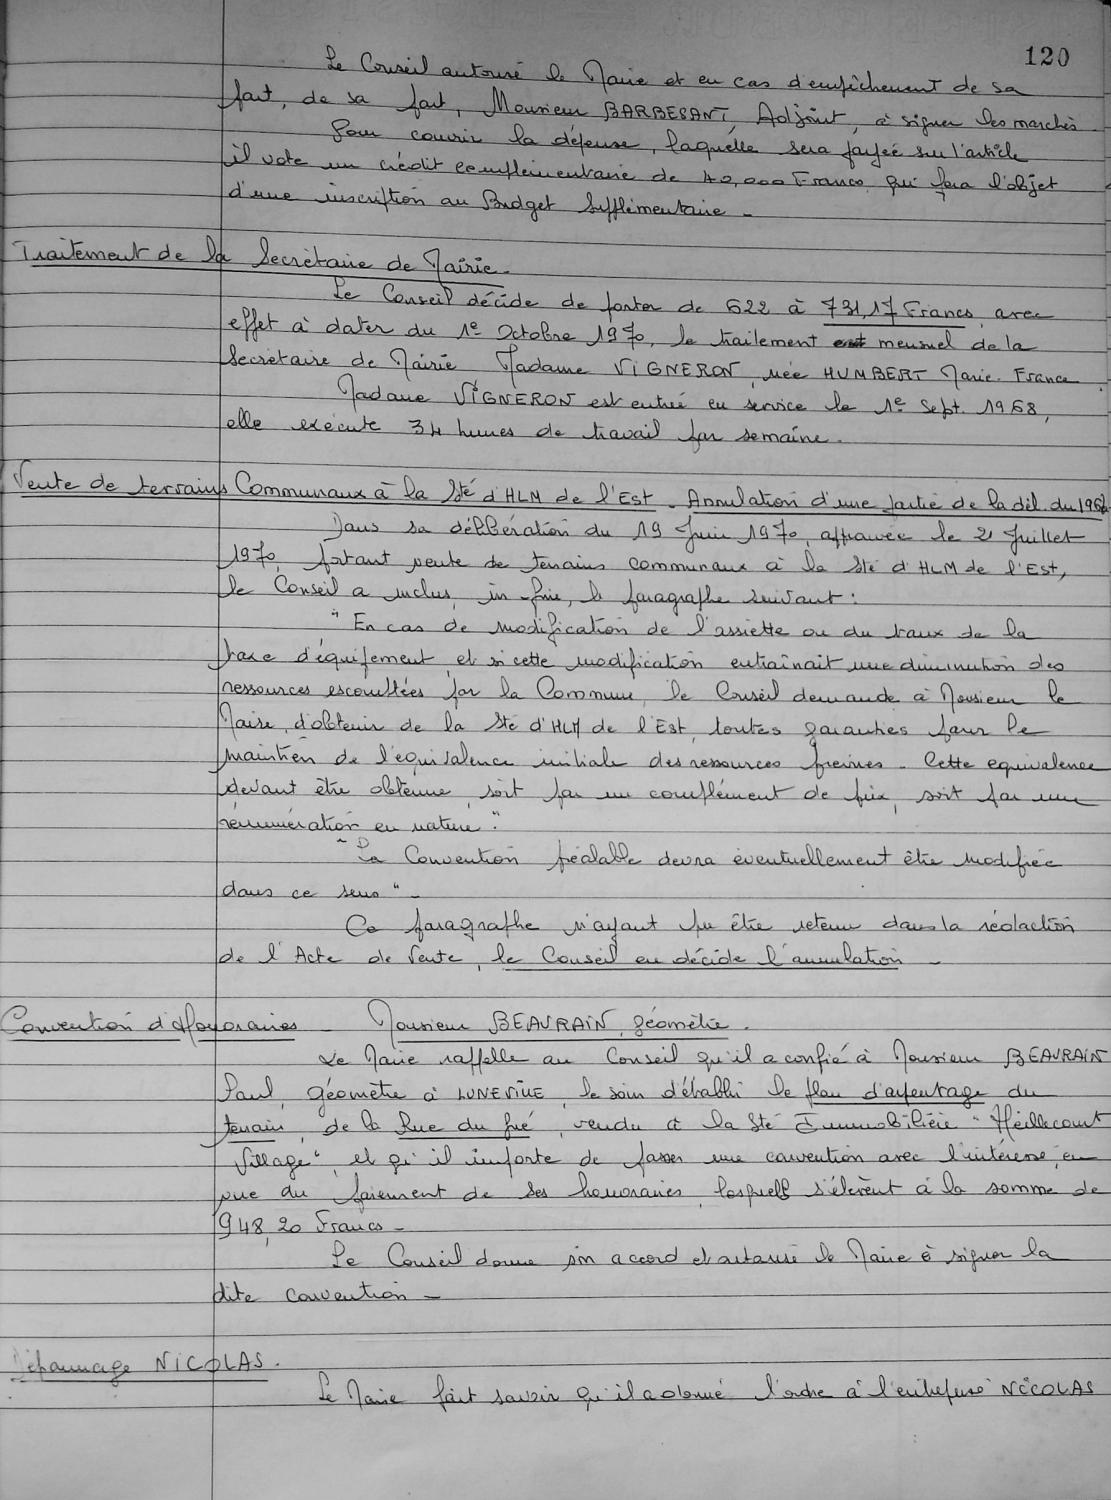 120
Le Conseil autorise le Maire et en cas d'empêchement de sa
part, de sa part, Monsieur BARBESANT, Adjoint, à signer les marchés.
Pour couvrir la dépense, laquelle sera payée sur l'article
il vote un crédit complémentaire de 40,000 Francs qui fera l'objet
d'une inscription au Budget Supplémentaire -
Traitement de la Secrétaire de Mairie.
Le Conseil décide de porter de 622 à 731,17 Francs, avec
effet à dater du 1e Octobre 1970, le traitement mensuel de la
Secrétaire de Mairie Madame VIGNERON, née HUMBERT Marie-France
Madame VIGNERON est entrée en service le 1e Sept. 1968,
elle exécute 34 heures de travail par semaine.
Vente de terrains Communaux à la Sté d'HLM de l'Est - Annulation d'une partie de la dél. du 19.6.
Dans sa délibération du 19 Juin 1970, approuvée le 21 Juillet
1970, portant vente de terrains communaux à la Sté d'HLM de l'Est,
le Conseil a inclus, in-fine, le paragraphe suivant :
" En cas de modification de l'assiette ou du taux de la
taxe d'équipement, et si cette modification entraînait une diminution des
ressources escomptées par la Commune, le Conseil demande à Monsieur le
Maire, d'obtenir de la Sté d'HLM de l'Est, toutes garanties pour le
maintien de l'équivalence initiale des ressources prévues - Cette equivalence
devant être obtenue, soit par un complément de prix, soit par une
rémunération en nature ".
" La Convention préalable devra éventuellement être modifiée
dans ce sens " -
Ce paragraphe n'ayant pu être retenu dans la rédaction
de l'Acte de Vente, le Conseil en décide l'annulation -
Convention d'Honoraires - Monsieur BEAURAIN, géomètre.
Le Maire rappelle au Conseil qu'il a confié à Monsieur BEAURAIN
Paul, géomètre à LUNEVILLE, le soin d'établir le plan d'arpentage du
terrain, de la Rue du pré, vendu à la Sté Immobilière " Heillecourt
Village ", et qu'il importe de passer une convention avec l'intéressé, en
vue du paiement de ses honoraires, lesquels s'élèvent à la somme de
948,20 Francs -
Le Conseil donne son accord et autorise le Maire à signer la
dite convention -
Dépannage NICOLAS.
Le Maire fait savoir qu'il a donné l'ordre à l'entreprise NICOLAS